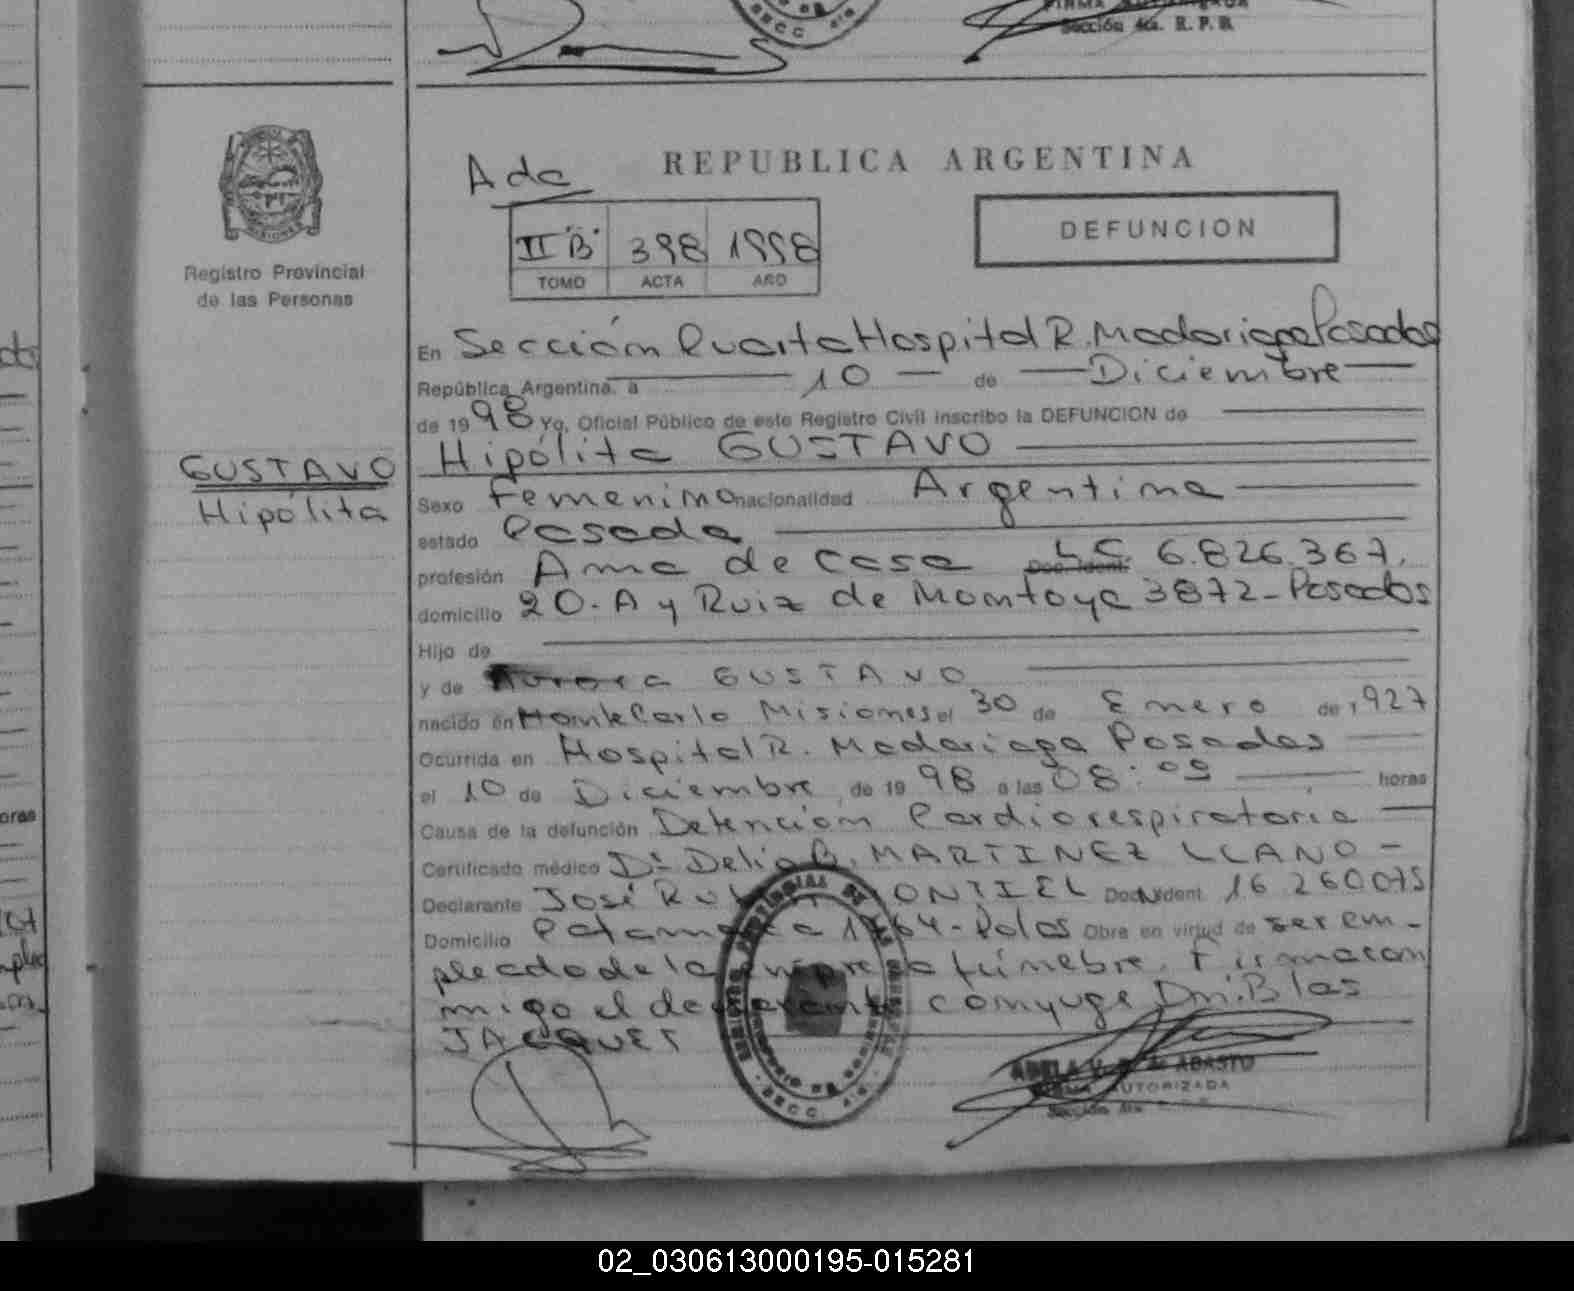 FIRMA AUTORIZADA
Sección 4ta. R. P. R.
REPUBLICA ARGENTINA
II "B" 398 1998
TOMO ACTA AÑO
DEFUNCION
Registro Provincial
de las Personas
GUSTAVO
Hipólita
En Sección Cuarta Hospital R. Madariaga Posadas
República Argentina, a 10 de Diciembre
de 1998 Yo, Oficial Público de este Registro Civil inscribo la DEFUNCION de
Hipólita GUSTAVO
Sexo Femenino nacionalidad Argentina
estado Casada
profesión Ama de Casa Doc. Ident. L.C. 6.826.367.
domicilio 20. A y Ruiz de Montoya 3872 - Posadas
Hijo de
y de Aurora GUSTAVO
nacido en Montecarlo Misiones el 30 de Enero de 1927
Ocurrida en Hospital R. Madariaga Posadas
el 10 de Diciembre de 1998 a las 08:09 horas
Causa de la defunción Detención Cardiorespiratoria
Certificado médico Dr. Delio MARTINEZ LLANO -
Declarante José MONTIEL Doc. Ident. 16 260075
Domicilio Catamarca 1764 - Pdas Obra en virtud de ser em-
pleado de la empresa fúnebre. Firma con
migo el declarante conyuge Dni. Blas
JACQUES
ADELA V. DE ABASTO
FIRMA AUTORIZADA
Sección 4ta
02_030613000195-015281